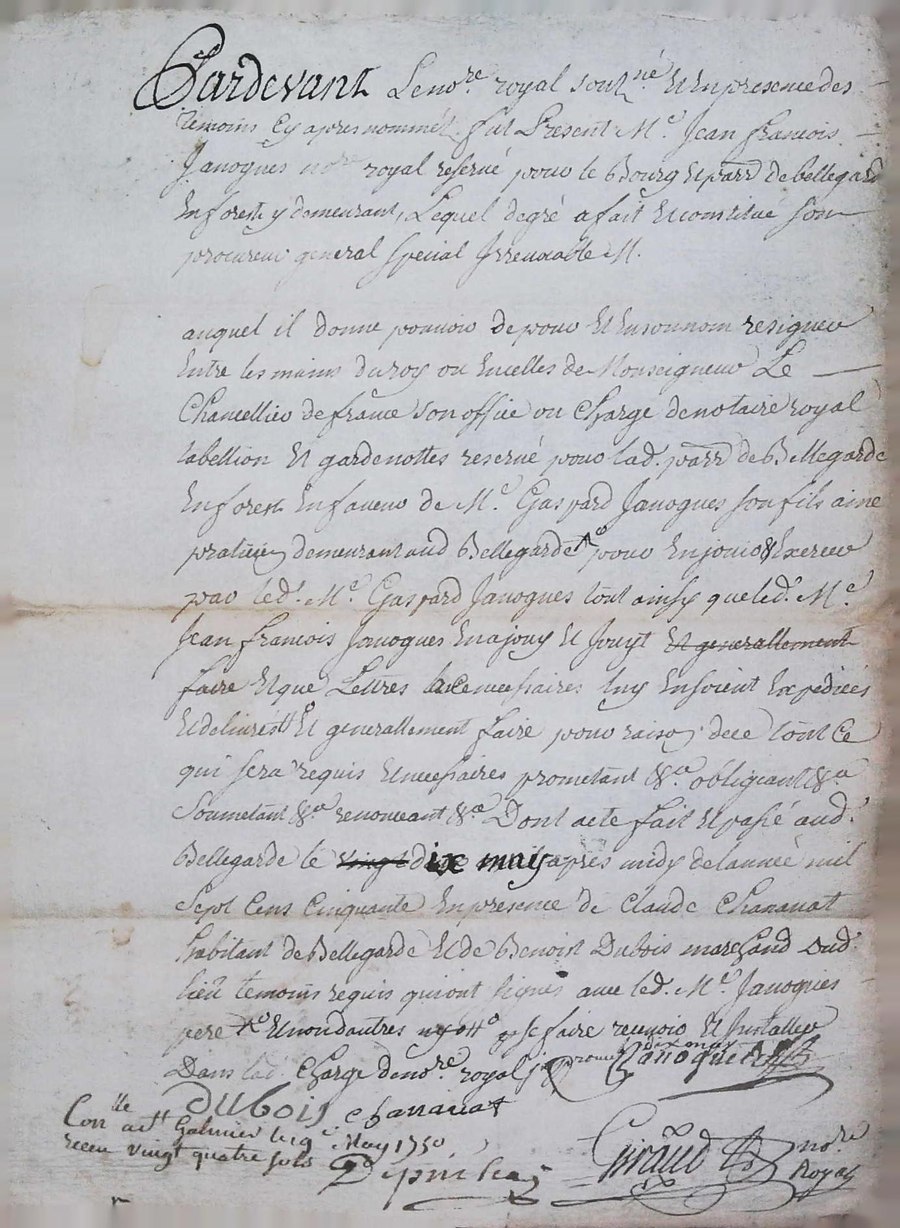 Pardevant Le no.re royal sous.né Et En presence des
temoins Cy apres nommés fut Present M.e Jean francois
Janogues no.re royal reservé pour le Bourg Et parr.e de bellegarde
En forest y demeurant, Lequel degré a fait Et constitué son
procureur general special Irrevocable M.
auquel il donne pouvoir de pour Et En son nom resigner
Entre les mains du roy ou En celles de Monseigneur Le
Chancellier de france son office ou charge de notaire royal
tabellion Et gardenottes reservé pour lad. parr.e de Bellegarde
En forest En faveur de M.e Gaspard Janogues son fils aine
praticien demeurant aud Bellegarde pour En jouir & Exercer
par led. M.e Gaspard Janogues tout ainsy que led. M.e
Jean francois Janogues En a jouy Et Jouyt Et generallement
faire Et que Lettres a ce necessaires luy En soient Expediées
Et delivreés Et generallement faire pour raison de ce tout Ce
qui sera requis Et necessaires prometant &.a obligeant &.a
Soumetant &.a renonceant &.a Dont acte fait Et passé aud.
Bellegarde le vingt dix may apres midy de lannée mil
Sept Cens Cinquante En presence de Claude Chanavat
habitant de Bellegarde Et de Benoist Dubois marchand dud.
lieu temoins requis qui ont signés avec led. M.e Janogues
pere Et non dautres se faire recevoir Et Installer
Dans lad. Charge de no.re royal Janogues
Dubois Chanavat
Con.lle a May 1750
receu vingt quatre sols
Giraud no.re
Royal